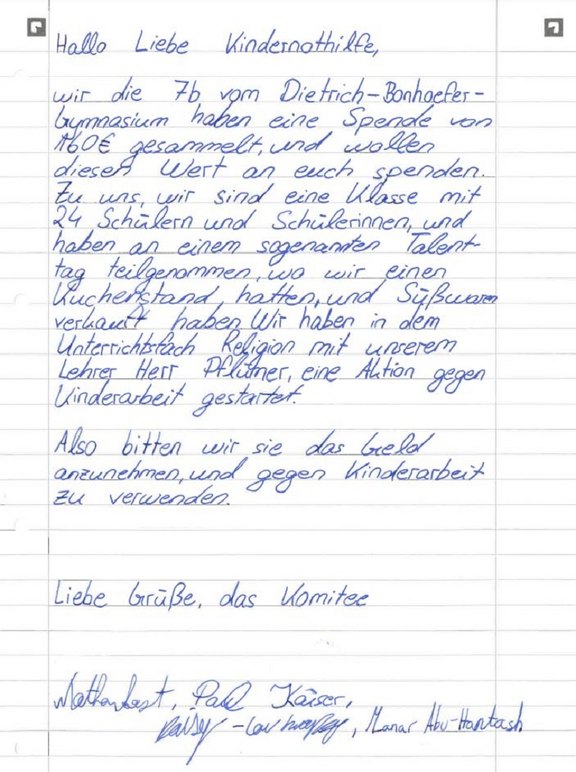 Hallo Liebe Kindernothilfe,
wir die 7b vom Dietrich-Bonhoefer-
Gymnasium haben eine Spende von
160€ gesammelt, und wollen
diesen Wert an euch spenden.
Zu uns, wir sind eine Klasse mit
24 Schülern und Schülerinnen, und
haben an einem sogenannten Talent-
tag teilgenommen, wo wir einen
Kuchenstand hatten, und Süßwaren
verkauft haben. Wir haben in dem
Unterrichtsfach Religion mit unserem
Lehrer Herr Pflütner, eine Aktion gegen
Kinderarbeit gestartet.
Also bitten wir sie das Geld
anzunehmen, und gegen Kinderarbeit
zu verwenden.
Liebe Grüße, das Komitee
Paul Kaiser,
Manar Abu-Hantash